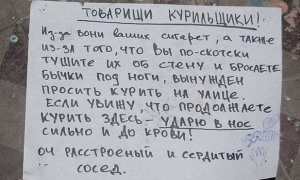 ТОВАРИЩИ КУРИЛЬЩИКИ!
Из-за вони ваших сигарет, а также
из-за того, что вы по-скотски
тушите их об стену и бросаете
бычки под ноги, вынужден
просить курить на улице.
Если увижу, что продолжаете
курить здесь – ударю в нос
сильно и до крови!
оч расстроеный и сердитый
сосед.